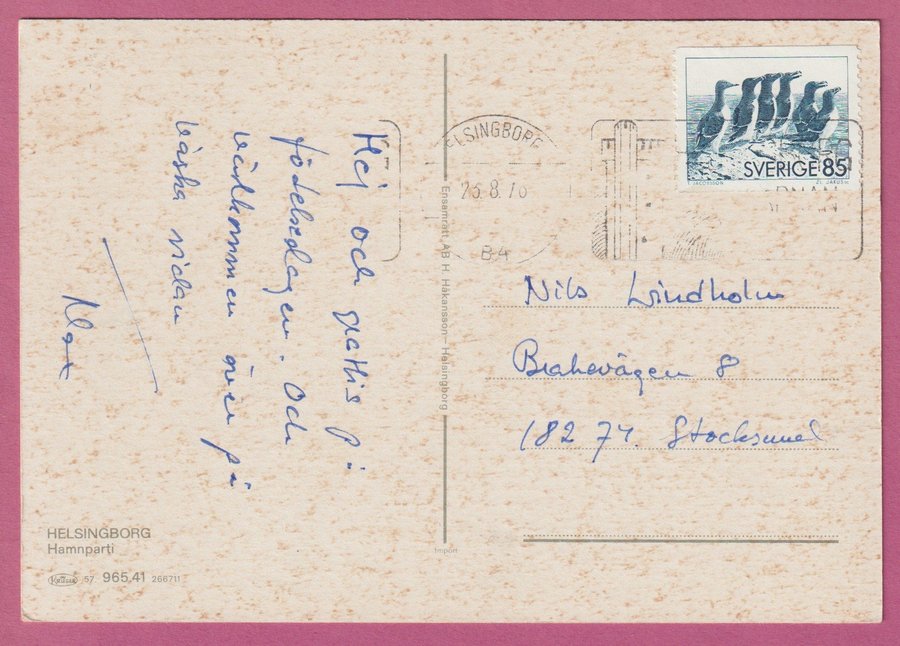 Hej och grattis på
födelsedagen. Och
välkommen över på
väsha sidan
HELSINGBORG
Hamnparti
KRÜGER 57 965.41 266711
Ensamrätt AB H. Håkansson – Helsingborg
Import
HELSINGBORG
8.76
B4
SVERIGE 85
Nils Lindholm
Brahevägen 8
182 74. Stocksund